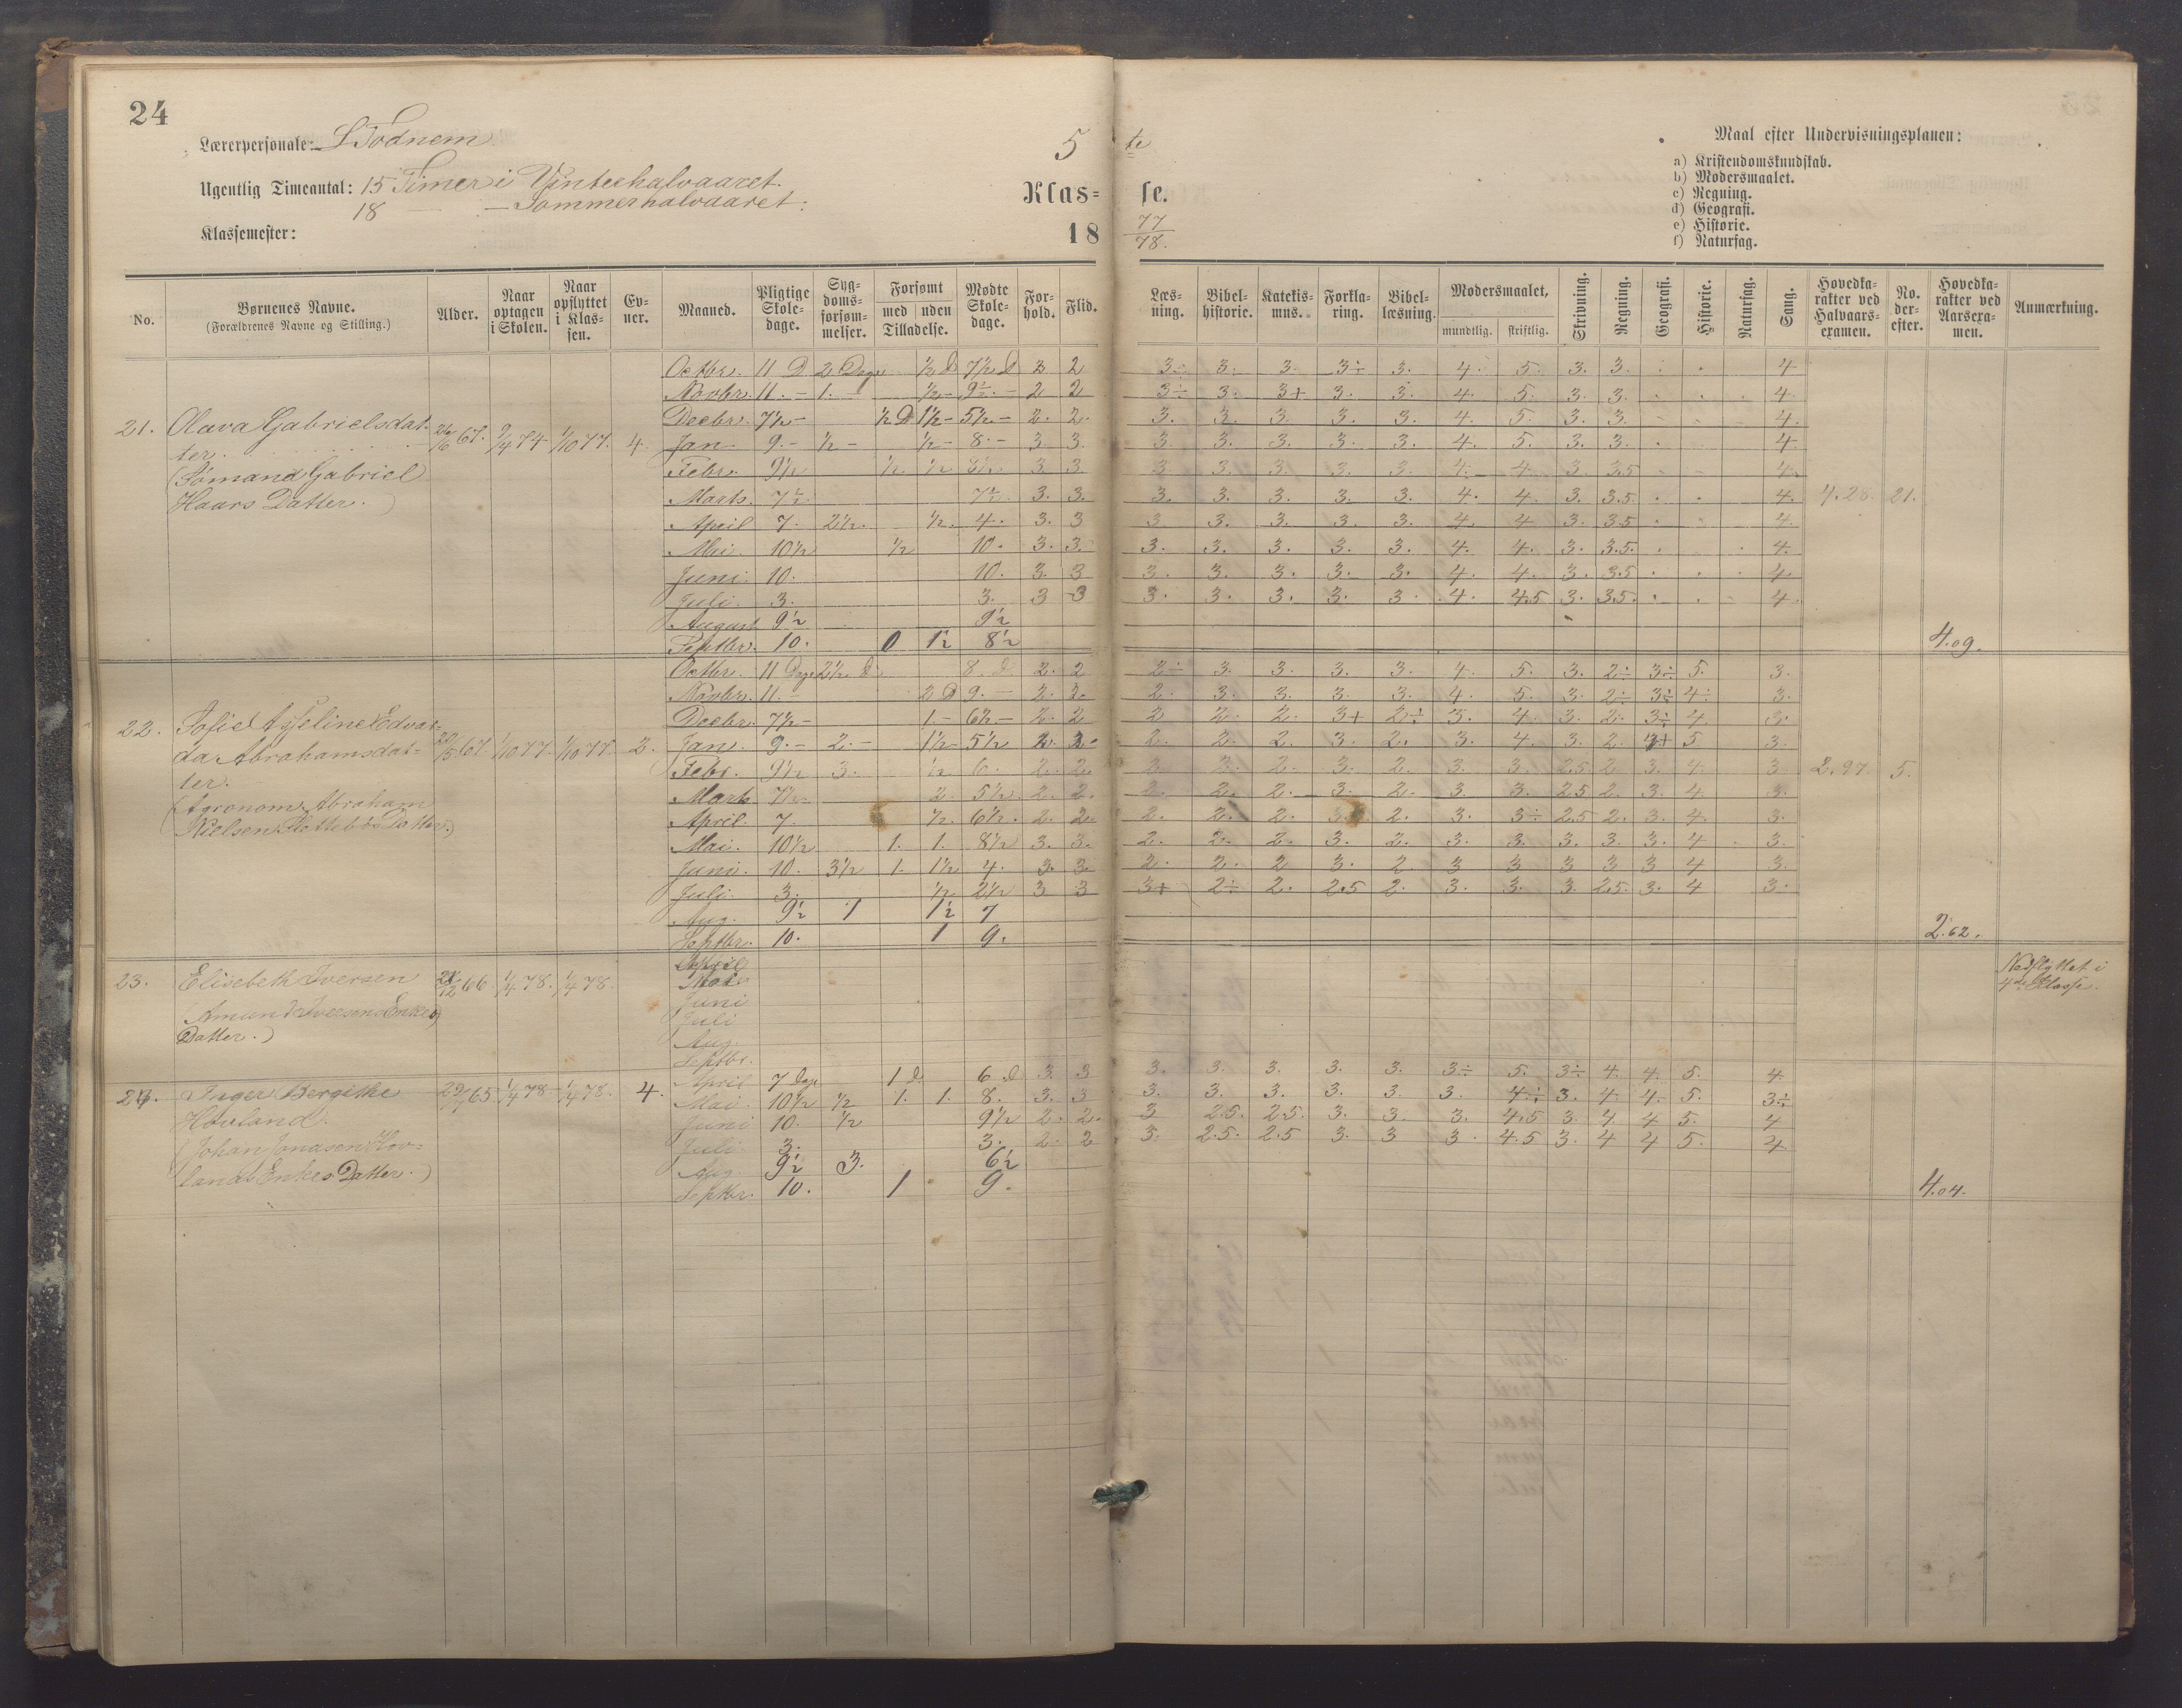 24
Lærerpersonale: S Todnem
5 te
Maal efter Undervisningsplanen:
a) Kristendomskundskab.
b) Modersmaalet.
c) Regning.
d) Geografi.
e) Historie.
f) Naturfag.
Ugentlig Timeantal: 15 Timer i Vinterhalvaaret.
18 — — Sommerhalvaaret.
Klas= se.
Klassemester:
18 77/78.
No. Børnenes Navne. (Forældrenes Navne og Stilling.) Alder. Naar optagen i Skolen. Naar opflyttet i Klas-sen. Ev-ner. Maaned. Pligtige Skole-dage. Syg-doms-forsøm-melser. Forsømt med uden Tilladelse. Mødte Skole-dage. For-hold. Flid. Læs-ning. Bibel-historie. Katekis-mus. Forkla-ring. Bibel-læsning. Modersmaalet, mundtlig. skriftlig. Skrivning. Regning. Geografi. Historie. Naturfag. Sang. Hovedka-rakter ved Halvaars-examen. No. der-efter. Hovedka-rakter ved Aarsexa-men. Anmærkning.
Octbr. 11 D 2 Dage ½ d 7½ d 2 2 3. 3. 3. 3÷ 3. 4. 5. 3. 3. 4
Novbr. 11. – 1. – ½ – 9½ – 2 2 3÷ 3. 3+ 3. 3. 4 5. 3. 3. 4.
Decbr. 7½ – ½ D 1½ – 5½ – 2. 2. 3. 3. 3. 3. 3. 4. 5. 3. 3. 4.
21. Olava Gabrielsdat- 67. 9/4 74 1/10 77. 4. Jan. 9. – ½ – ½ – 8. – 3 3. 3. 3. 3. 3. 3. 4. 5. 3. 3. 4
ter.
Febr. 9½ ½ ½ 8½ 3. 3 3 3. 3. 3. 3. 4. 4. 3. 3.5 4.
(Sømand Gabriel
Haars Datter.)
Marts. 7½ 7½ 3. 3. 3. 3. 3. 3. 3. 4. 4. 3. 3.5. 4. 4.28. 21.
April 7. 2½. ½. 4. 3. 3 3 3. 3. 3. 3. 4 4 3. 3.5 4.
Mai. 10½ ½ 10. 3. 3. 3. 3. 3. 3. 3. 4. 4. 3. 3.5. 4.
Juni. 10. 10. 3. 3 3. 3. 3. 3. 3. 4. 4. 3. 3.5 4.
Juli. 3. 3. 3 3 3. 3. 3. 3. 3. 4. 4.5 3. 3.5. 4.
August 9½ 9½
Septbr. 10. 0 1½ 8½ 4.09.
Octbr. 11 Dage 2½ d 8. d. 2. 2 2÷ 3. 3. 3. 3. 4. 5. 3. 2÷ 3÷ 5. 3.
Novbr. 11. 2 D 9. – 2. 2. 2. 3. 3. 3. 3. 4. 5. 3. 2÷ 3÷ 4÷ 3.
Decbr. 7½ – 1. – 6½ – 2. 2 2 2. 2. 3+ 2÷ 3. 4. 3. 2. 3÷ 4. 3.
22. Sofie Edvar-
da Abrahamsdat= 67. 1/10 77. 1/10 77. 2. Jan. 9. – 2. – 1½ – 5½ 2. 2. 2. 2. 2. 3. 2. 3. 4. 3. 2. 5 3.
ter.
Febr. 9½ 3. ½ 6. 2. 2. 2. 2. 2. 3. 2. 3. 3. 2.5 2. 3. 4. 3 2.97. 5.
(Agronom Abraham
Nielsen Slettebøs Datter.)
Marts 7½. 2. 5½. 2. 2. 2. 2. 2. 3. 2. 3. 3. 2.5 2. 3. 4 3.
April. 7. ½. 6½. 2. 2. 2. 2. 2. 2. 3. 3÷ 2.5 2. 3. 4. 3.
Mai. 10½ 1. 1. 8½ 3. 3. 2. 2. 2. 3. 2. 3. 3. 3. 3. 3. 4 3.
Juni. 10. 3½ 1. 1½ 4. 3. 3. 2. 2. 2 3. 2. 3 3 3 3 3 4 3.
Juli. 3. ½ 2½ 3 3 3+ 2÷ 2. 2.5 2. 3. 3. 3. 2.5. 3. 4 3.
Aug. 9½ 1 1½ 7
Septbr. 10. 1 9. 2.62.
April
23. Elisebeth Iversen 66. 1/4 78. 1/4 78. Mai Nedflyttet i
4de Klasse.
Juni
(Amund Iversens Enkes
Juli
Datter.)
Aug.
Septbr.
24. Inger Bergithe 65 1/4 78 1/4 78. 4. April 7 Dage 1 d. 6 d 3. 3 3. 3. 3. 3. 3. 3÷ 5. 3÷ 4. 4. 5. 4.
Hovland.
Mai. 10½ ½ 1. 1. 8. 3. 3 3. 3. 3. 3. 3. 3. 4÷ 3. 4. 4. 5. 3÷
Juni 10. ½ 9½ 2. 2. 3 2.5. 2.5. 3. 3. 3. 4.5 3. 4. 4 5. 4
(Johan Jonasen Hov-
Juli. 3. 3. 2. 2 3. 2.5. 2.5 3. 3 3. 4.5 3. 4 4 5. 4
lands Enkes Datter.)
Aug. 9½ 3. 6½
Septbr. 10. 1 9. 4.04.